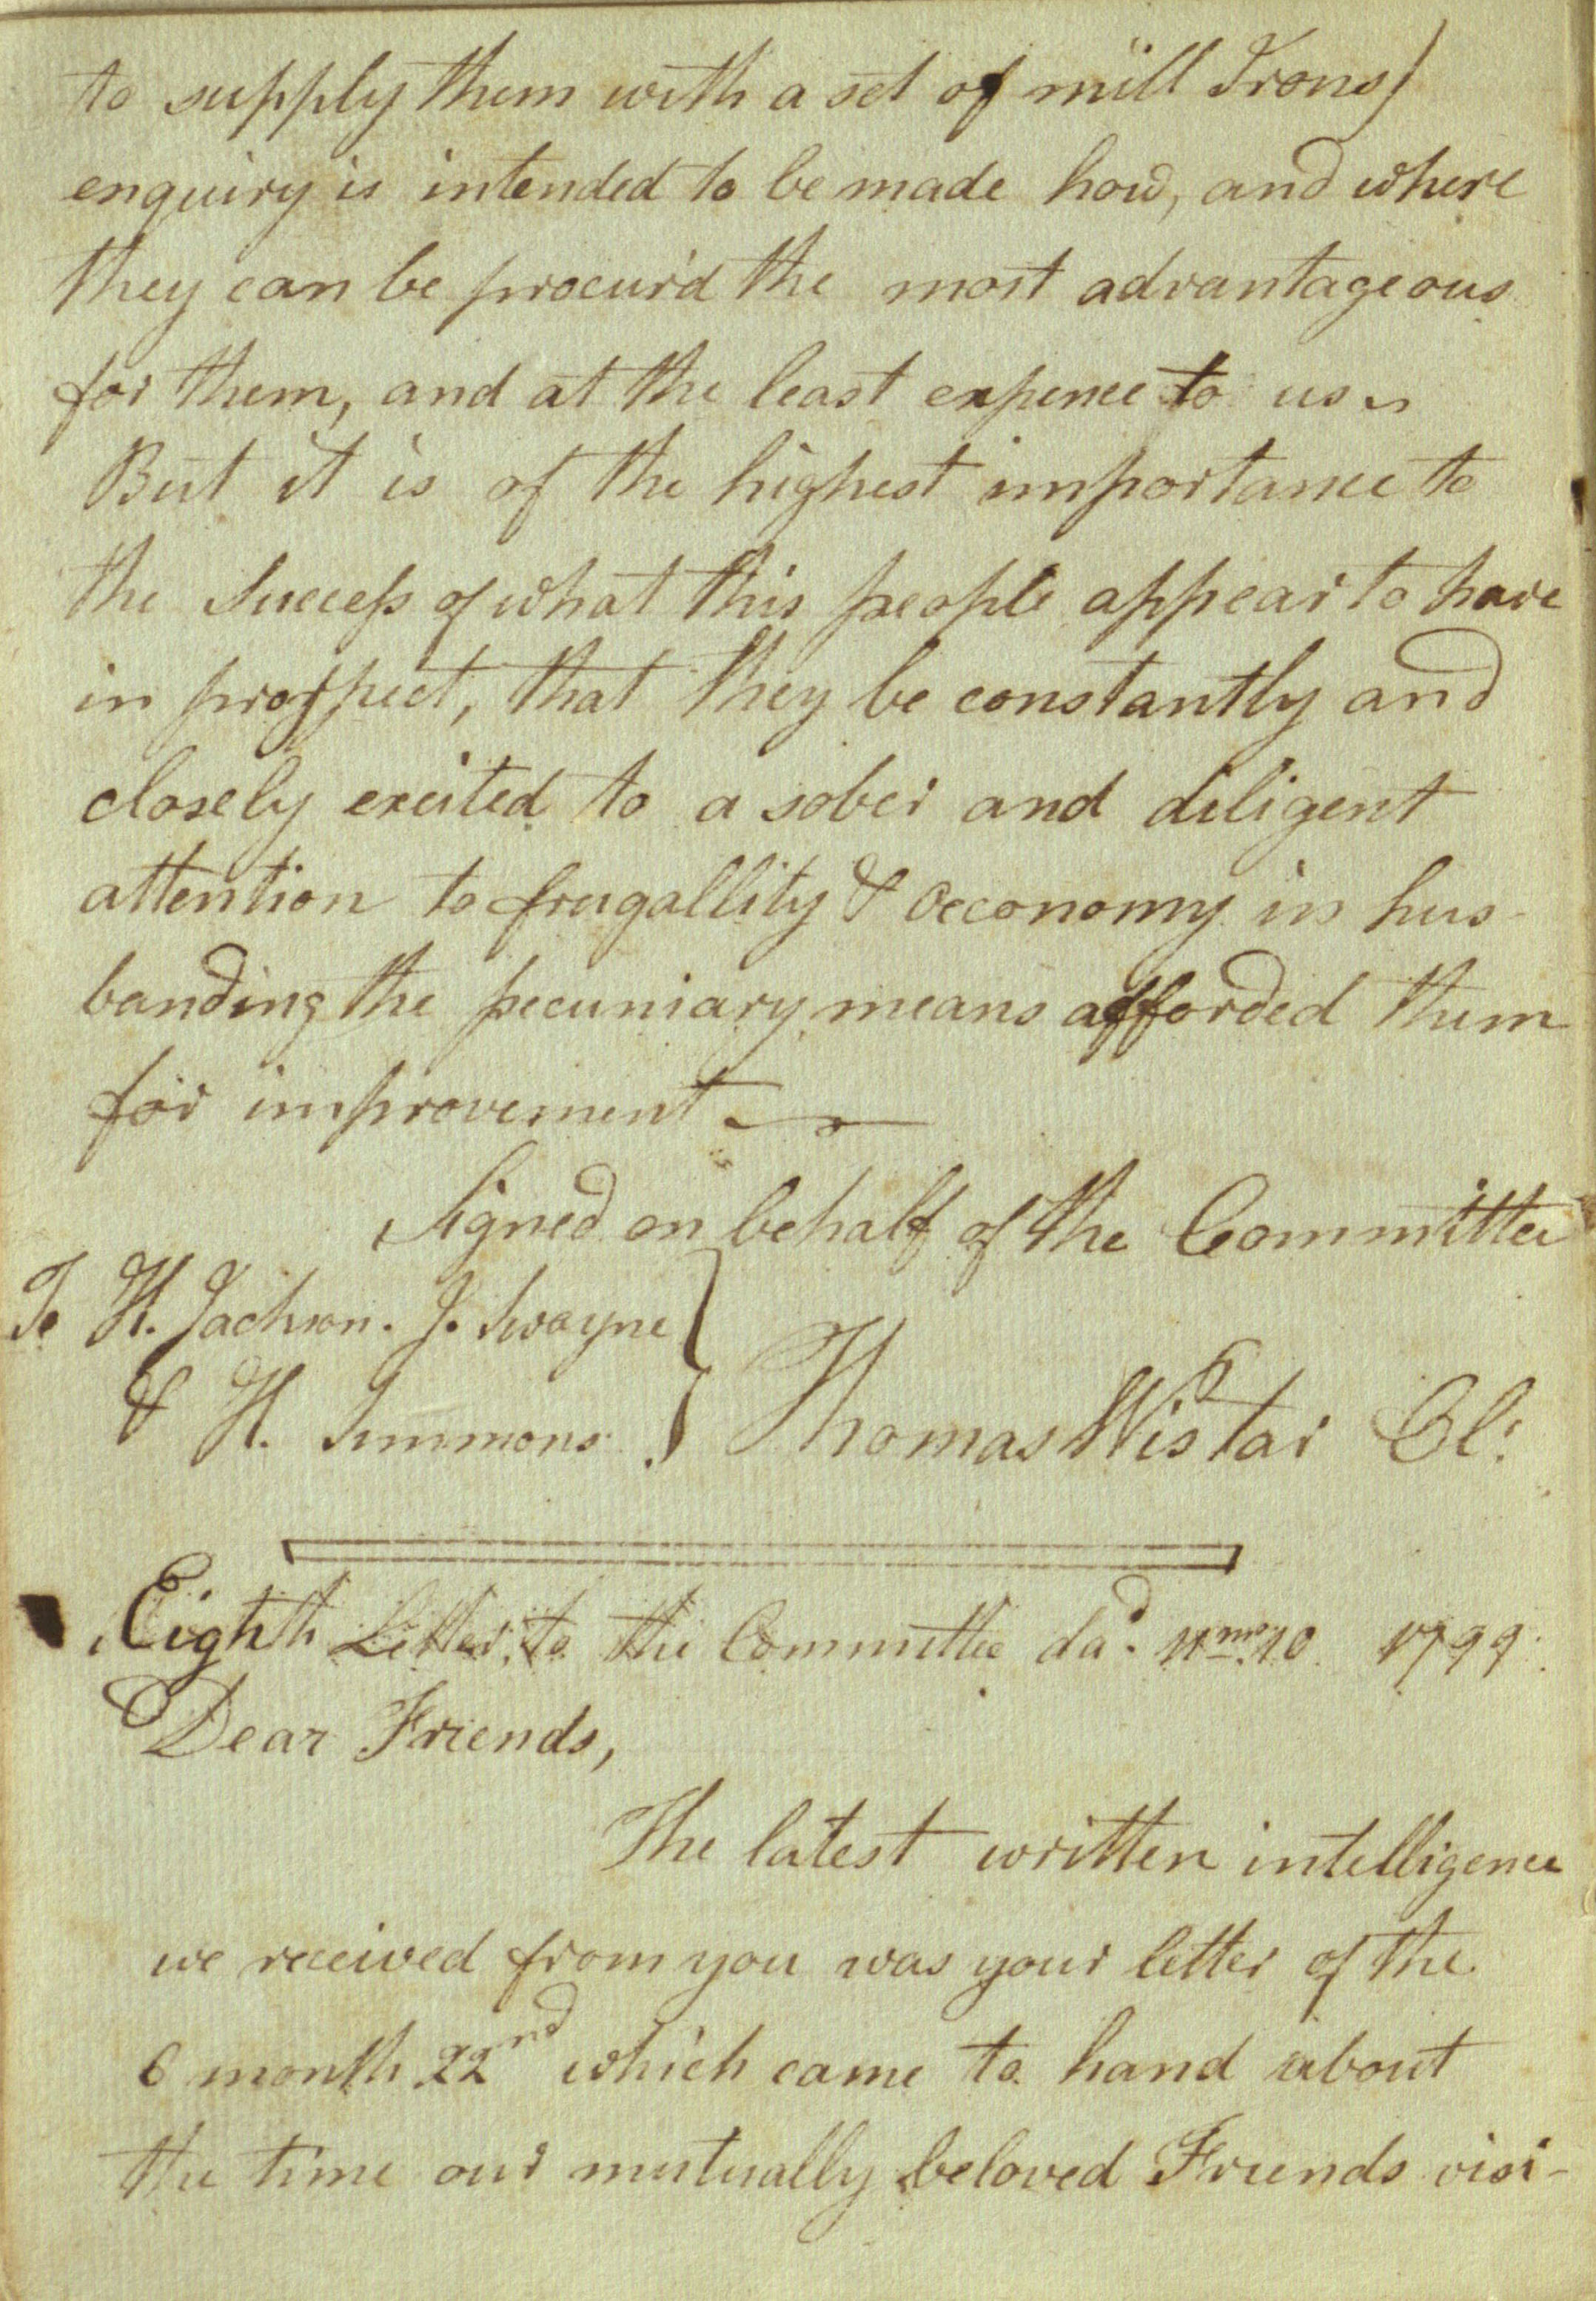 to supply them with a set of mill Irons)
enquiry is intended to be made how, and where
they can be procur'd the most advantageous
for them, and at the least expence to us.
But it is of the highest importance to
the Success of what this people appear to have
in prospect, that they be constantly and
closely excited to a sober and diligent
attention to frugallity & Oeconomy in hus-
banding the pecuniary means afforded them
for improvement —
Signed on behalf of the Committee
To H. Jackson. J. Swayne
& H. Simmons. } Thomas Wistar Cl:
Eighth Letter to the Committee da.d 11mo. 10 1799.
Dear Friends,
The latest written intelligence
we received from you was your letter of the
6 month 22nd which came to hand about
the time our mutually beloved Friends visi-